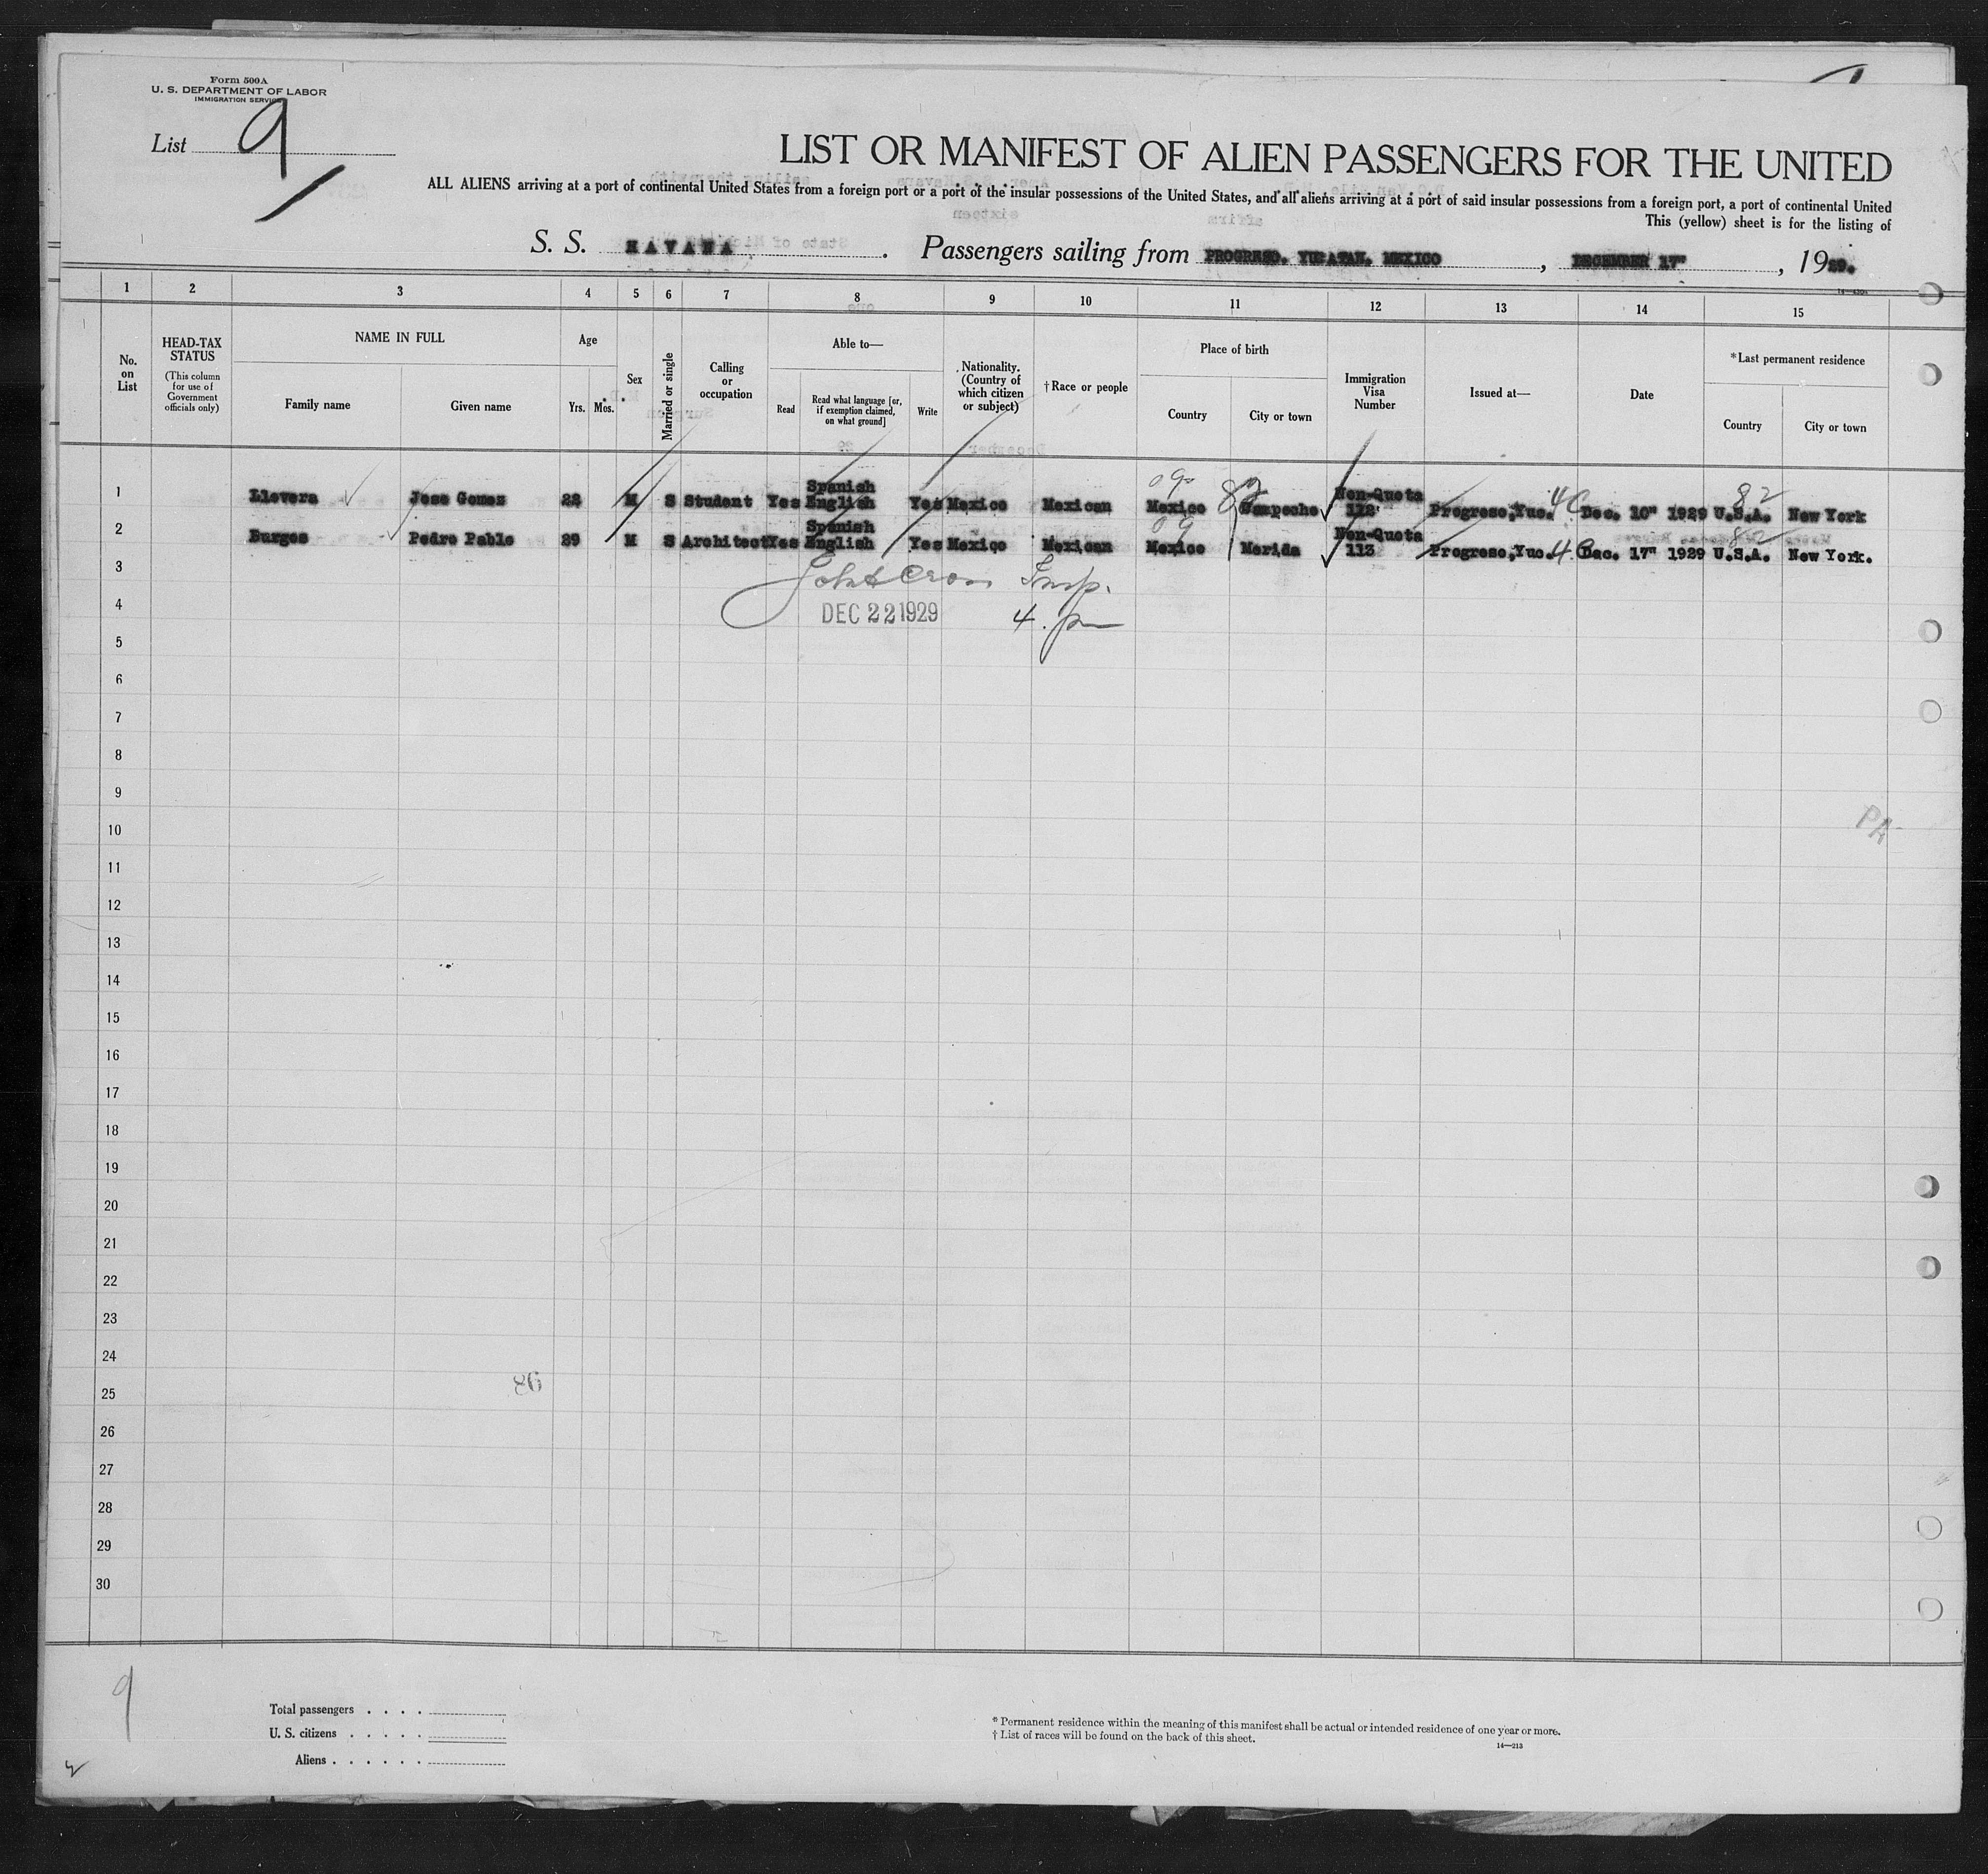 Form 500A
U. S. DEPARTMENT OF LABOR
IMMIGRATION SERVICE
List 9
LIST OR MANIFEST OF ALIEN PASSENGERS FOR THE UNITED
ALL ALIENS arriving at a port of continental United States from a foreign port or a port of the insular possessions of the United States, and all aliens arriving at a port of said insular possessions from a foreign port, a port of continental United
This (yellow) sheet is for the listing of
S. S. HAVANA. Passengers sailing from PROGRESO, YUCATAN, MEXICO, DECEMBER 17", 1929.
1 2 3 4 5 6 7 8 9 10 11 12 13 14 15
No. on List
HEAD-TAX STATUS
(This column for use of Government officials only)
NAME IN FULL
Family name
Given name
Age
Yrs. Mos.
Sex
Married or single
Calling or occupation
Able to—
Read
Read what language [or, if exemption claimed, on what ground]
Write
Nationality. (Country of which citizen or subject)
† Race or people
Place of birth
Country
City or town
Immigration Visa Number
Issued at—
Date
*Last permanent residence
Country
City or town
09 82 82
1 Llovera Jose Gomez 22 M S Student Yes Spanish English Yes Mexico Mexican Mexico Campeche Non-Quota 112 Progreso,Yuc. 4C Dec. 10" 1929 U.S.A. New York
09 82
2 Burgos Pedro Pablo 29 M S Architect Yes Spanish English Yes Mexico Mexican Mexico Merida Non-Quota 113 Progreso,Yuc. 4C Dec. 17" 1929 U.S.A. New York.
3 Insp.
4 DEC 22 1929 4. pm
5
6
7
8
9
10
PA
11
12
13
14
15
16
17
18
19
20
21
22
23
24
25
26
27
28
29
30
9
Total passengers . . . .
U. S. citizens . . . . .
Aliens . . . . . .
* Permanent residence within the meaning of this manifest shall be actual or intended residence of one year or more.
† List of races will be found on the back of this sheet.
14—213